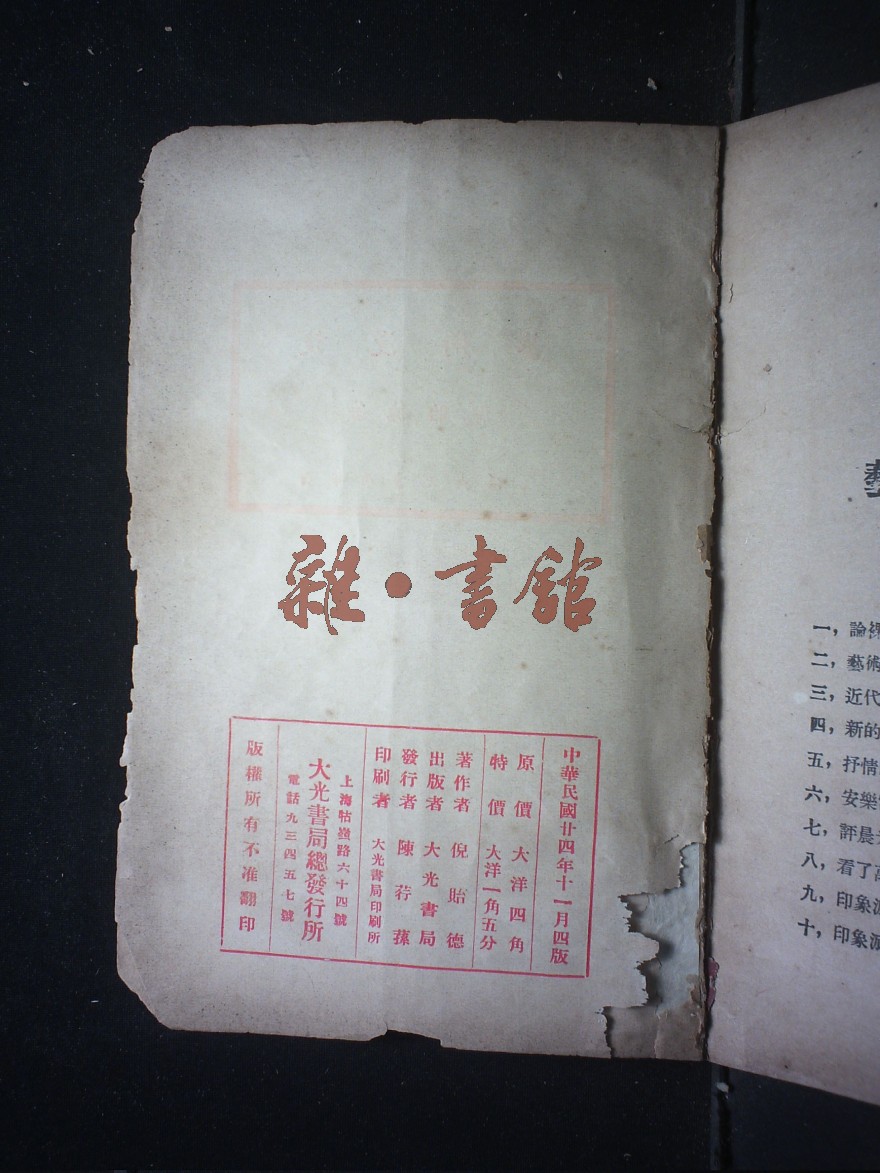 雜·書館
中華民國廿四年十一月四版
原價 大洋四角
特價 大洋一角五分
著作者 倪貽德
出版者 大光書局
發行者 陳荇蓀
印刷者 大光書局印刷所
上海牯嶺路六十四號
大光書局總發行所
電話九三四五七號
版權所有不准翻印
藝
一，論裸
二，藝術
三，近代
四，新的
五，抒情
六，安樂
七，評晨
八，看了
九，印象派
十，印象派